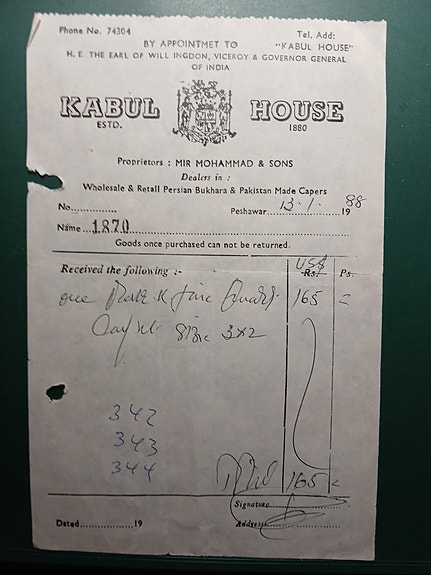 Phone No. 74304
Tel, Add:
BY APPOINTMET TO "KABUL HOUSE"
H. E. THE EARL OF WILL INGDON, VICEROY & GOVERNOR GENERAL
OF INDIA
KABUL HOUSE
ESTD. 1880
Proprietors : MIR MOHAMMAD & SONS
Dealers in :
Wholesale & Retall Persian Bukhara & Pakistan Made Capers
No.............. Peshawar 13.1. 1988
Name..1870
Goods once purchased can not be returned.
Received the following :- US$ Rs. Ps.
one fine 165 =
size 3x2
342
343
344
165 =
Signature
Dated...............19 Address